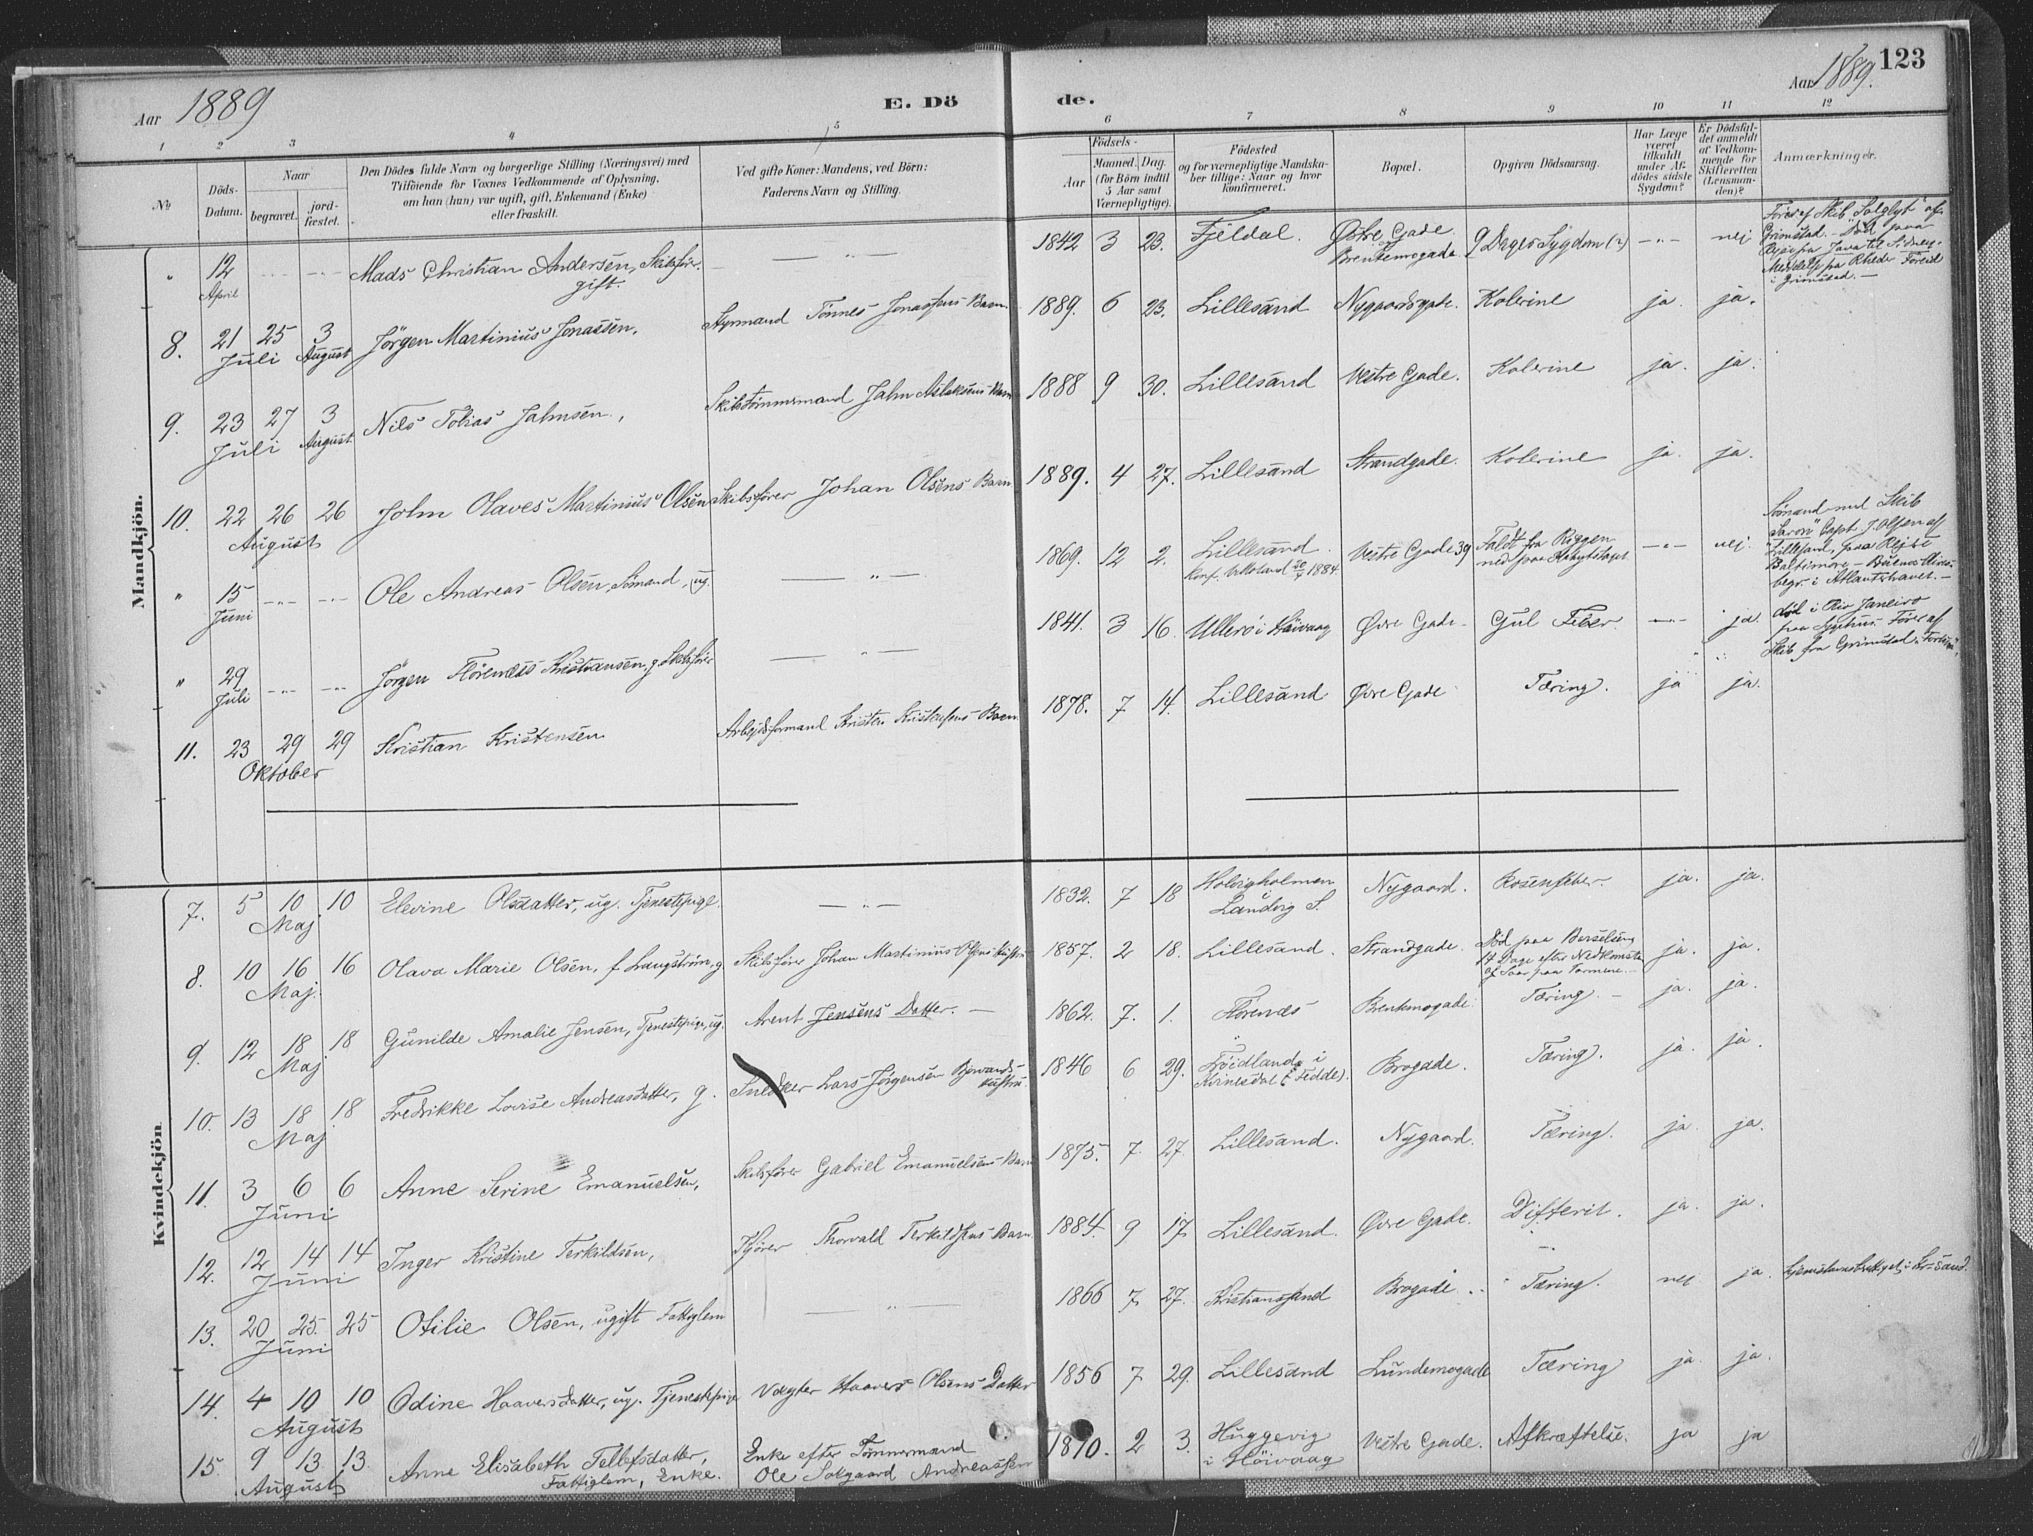 Aar 1889
E. Dö
de.
Aar 1889.
123
1 2 3 4 5 6 7 8 9 10 11 12
№
Döds-Datum.
Naar
begravet.
jord-fæstet.
Den Dödes fulde Navn og borgerlige Stilling (Næringsvei) med
Tilföiende for Voxnes Vedkommende af Oplysning,
om han (hun) var ugift, gift, Enkemand (Enke)
eller fraskilt.
Ved gifte Koner: Mandens, ved Börn:
Faderens Navn og Stilling.
Födsels-
Aar
Maaned. Dag.
(for Börn indtil
5 Aar samt
Værnepligtige).
Födested
og for værnepligtige Mandska-
ber tillige: Naar og hvor
konfirmeret.
Bopæl.
Opgiven Dödsaarsag.
Har Læge
været
tilkaldt
under Af-
dödes sidste
Sygdom?
Er Dödsfal-
det anmeldt
af Vedkom-
mende for
Skifteretten
(Lensman-
den)?
Anmærkninger.
Mandkjön.
" 12 April Mads Christian Andersen, Skibsfør. gift. 1842 3 23. Fjeldal. Østre Gade Brentemogade. 9 Dages Sygdom (?) -"- nej Fører af Skib "Solglyt" af Grimstad. - Død paa Rejse fra Java til Sidney.
8. 21 25 Juli 3 August Jørgen Martinius Jonassen, Styrmand Tønnes Jonassens Barn. 1889. 6 23. Lillesand Nygaardsgade. Kolerine ja. ja.
9. 23 27 Juli 3 August. Nils Tobias Jahnsen, Skibstømmermand Jahn Aslaksens Barn 1888 9 30. Lillesand Vestre Gade. Kolerine ja. ja.
10. 22 26 26 August John Olaves Martinius Olsen Skibsfører Johan Olsens Barn 1889. 4 27. Lillesand Strandgade. Kolerine ja. ja.
" 15 Juni -"- -"- Ole Andreas Olsen, Sømand, ug. -"- 1869. 12 2. Lillesand. Konf. 1884. Vestre Gade 39 Faldt fra Riggen ned paa -"- nej. Sømand med Skib "Saron" Capt. J. Olsen af Lillesand, paa Rejse Baltimore - Buenos Aires. begr. i Atlantshavet. -
" 29 Juli -"- -"- Jørgen Flørenæs Kristiansen, g. Skibsfører -"- 1841. 3 16. Ulerø i Høivaag Øvre Gade - Gul Feber. -"- ja. død i Rio Janeiro paa Sygehus. Fører af Skib fra Grimstad
11. 23 29 29 Oktober Kristian Kristensen Arbejdsformand Kristen Kristensens Barn 1878. 7 14. Lillesand Øvre Gade Tæring. ja ja.
Kvindekjön
7. 5 10 10 Maj Elevine Olsdatter, ug. Tjenestepige. -"- 1832. 7 18 Holvigholmen i Landvig S. Nygaard. Rosenfeber. ja. ja.
8. 10 16 16 Maj. Olava Marie Olsen, f. Langstrøm, g. Skibsfører Johan Martinius Olsens Hustru 1857. 2 18. Lillesand. Strandgade. Død paa Barselseng 14 Dage efter Nedkomsten ja. ja.
9. 12 18 18 Maj Gunilde Amalie Jensen, Tjenestepige, ug. Arent Jensens Datter. - 1862. 7. 1. Flørenæs Brentemogade. Tæring. - ja. ja.
10. 13 18 18 Maj Fredrikke Lovise Andreasdatter, g. Snedker Lars Jørgensen 1846 6 29. Frøidland i Kvinesdal (Fedde). Brogade. Tæring. ja. ja.
11. 3 6 6 Juni Anne Serine Emanuelsen, Skibsfører Gabriel Emanuelsens Barn 1875. 7. 27. Lillesand. Nygaard. Tæring. ja. ja.
12. 12 14 14 Juni Inger Kristine Terkildsen, Kjører Thorvald Terkildsens Barn 1884. 9 17 Lillesand. Øvre Gade. Difterit. ja. ja.
13. 20 25. 25 Juni Otilie Olsen, ugift Fattiglem -"- 1866 7 27. Kristianssand Brogade. Tæring. nej ja.
14. 4 10 10 August Odine Haaversdatter, ug. Tjenestepige Vægter Haaver Olsens Datter 1856 7 29. Lillesand Lundemogade Tæring ja. ja.
15. 9 13. 13. August Anne Elisabeth Tellefsdatter, Fattiglem, Enke. Enke efter Tømmermand Ole Solgaard Andreassen 1810. 2 3. Huggevig i Høivaag Vestre Gade. Afkræftelse. ja ja